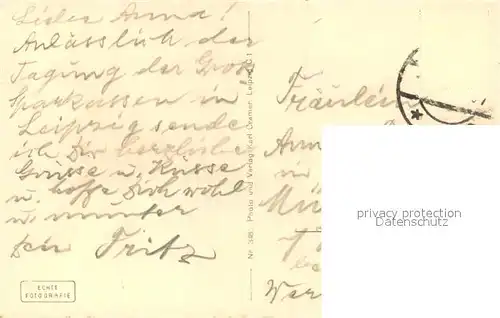 Liebe Anna!
Anlässlich der
Tagung der Groß
sparkassen in
Leipzig sende
ich Dir herzliche
Grüsse u. Küsse
u. hoffe Dich wohl
u. munter
Dein Fritz
ECHTE
FOTOGRAFIE
Nr. 395 Photo und Verlag Karl Cramer, Leipzig
Fräulein
Ann
in
Mü
privacy protection
Datenschutz
Wer